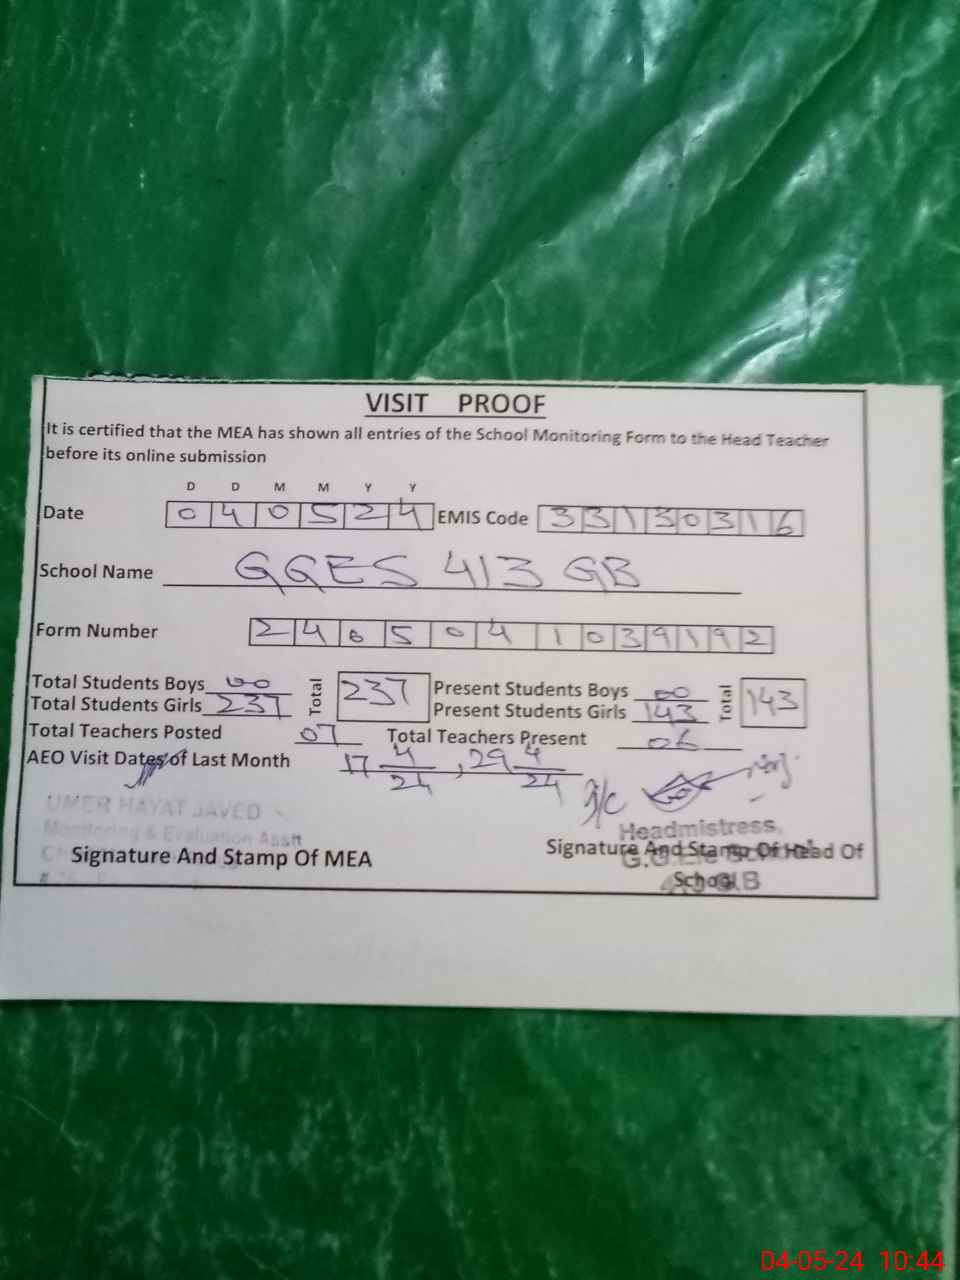 VISIT PROOF
It is certified that the MEA has shown all entries of the School Monitoring Form to the Head Teacher
before its online submission
D D M M Y Y
Date 0 4 0 5 2 4 EMIS Code 3 3 1 3 0 3 1 6
School Name GGES 413 GB
Form Number 2 4 0 5 0 4 1 0 3 9 1 9 2
Total Students Boys 00 Total 237 Present Students Boys 00 Total 143
Total Students Girls 237 Present Students Girls 143
Total Teachers Posted 07 Total Teachers Present 06
AEO Visit Dates of Last Month 17 4/24, 29 4/24
I/C
UMER HAYAT JAVED
Monitoring & Evaluation Asstt
Headmistress,
Signature And Stamp Of MEA
Signature And Stamp Of Head Of
School
04-05-24 10:44